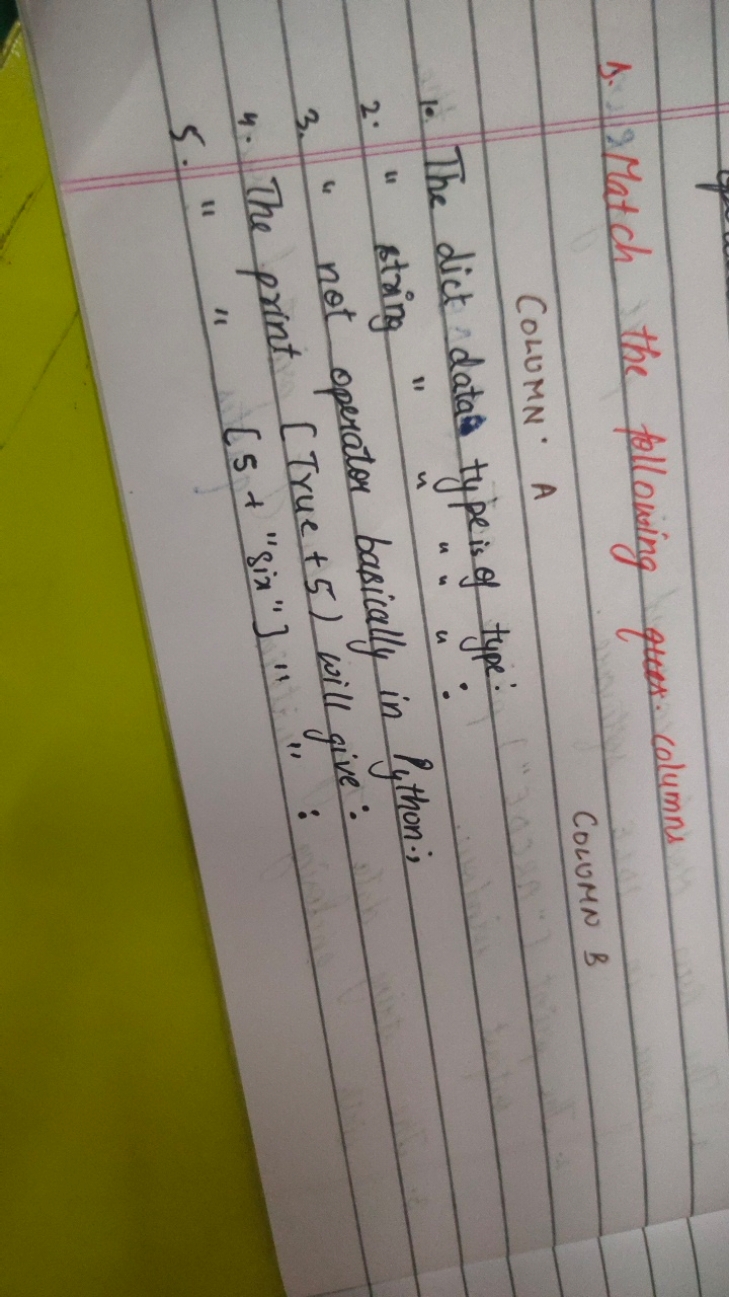 1. Match the following columns
COLUMN A COLUMN B
1. The dict data type is of type:
2. " string " " " " " :
3. " not operator basically in Python:;
4. The print [True + 5) will give:
5. " " [5 + "six"] " " :